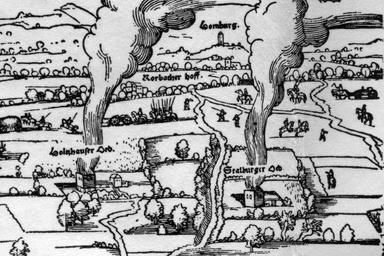 Homburg.
Korbacher hoff.
Holzhauser Oed
Stalburger Oed